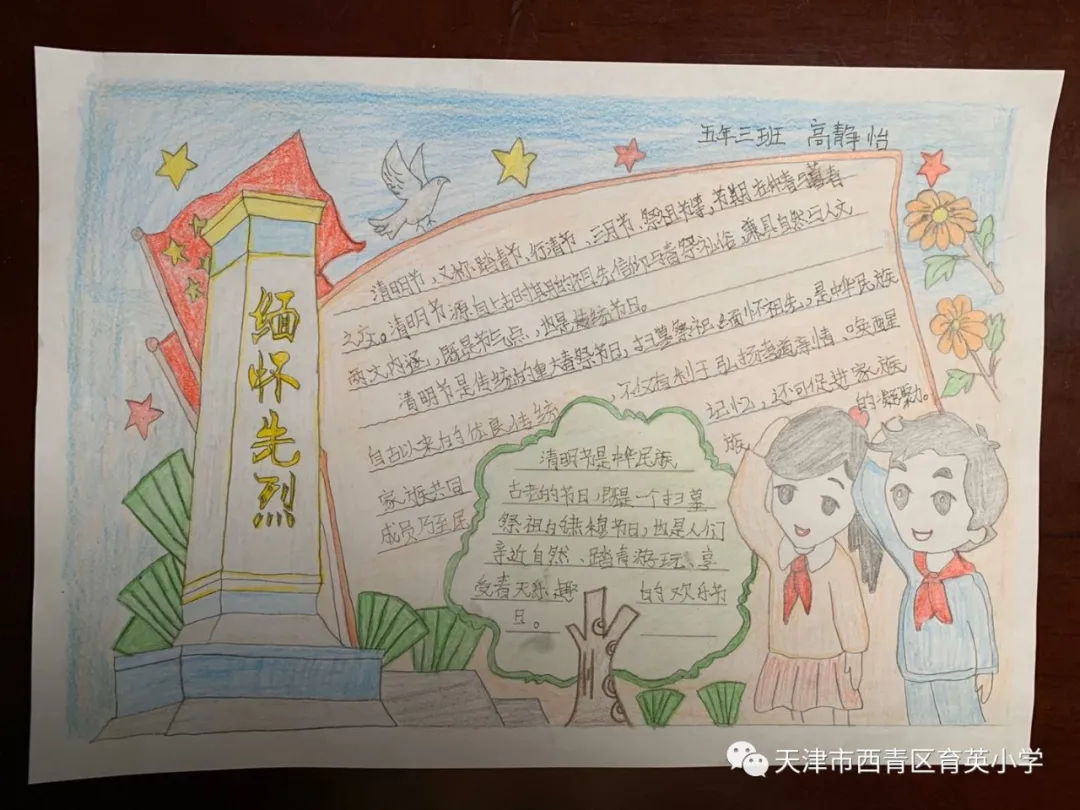 五年三班 高静怡
缅怀先烈
清明节，又称踏青节、行清节、三月节、祭祖节等，节期在仲春与暮春
之交。清明节源自上古时期的祖先信仰与春祭礼俗，兼具自然与人文
两大内涵，既是节气点，也是传统节日。
清明节是传统的重大春祭节日，扫墓祭祀、缅怀祖先，是中华民族
自古以来的优良传统，不仅有利于弘扬孝道亲情、唤醒
家族共同记忆，还可促进家族
成员乃至民族的凝聚力。
清明节是中华民族
古老的节日，既是一个扫墓
祭祖的肃穆节日，也是人们
亲近自然、踏青游玩、享
受春天乐趣的欢乐节
日。
天津市西青区育英小学